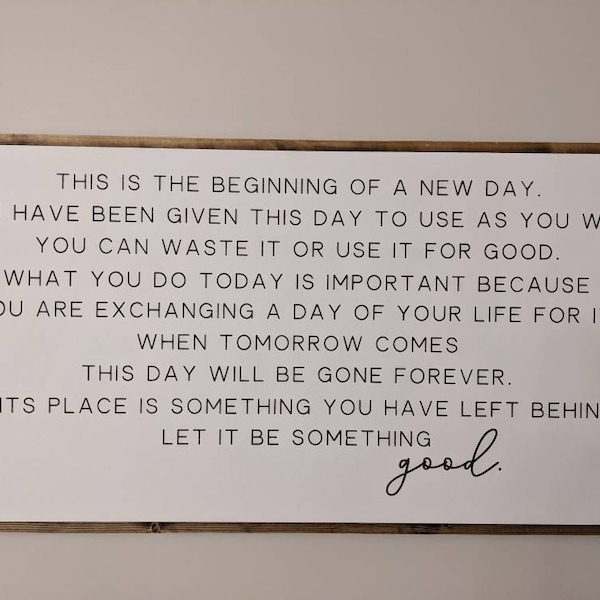 THIS IS THE BEGINNING OF A NEW DAY.
HAVE BEEN GIVEN THIS DAY TO USE AS YOU
YOU CAN WASTE IT OR USE IT FOR GOOD.
WHAT YOU DO TODAY IS IMPORTANT BECAUSE
ARE EXCHANGING A DAY OF YOUR LIFE FOR
WHEN TOMORROW COMES
THIS DAY WILL BE GONE FOREVER.
ITS PLACE IS SOMETHING YOU HAVE LEFT
LET IT BE SOMETHING
good.